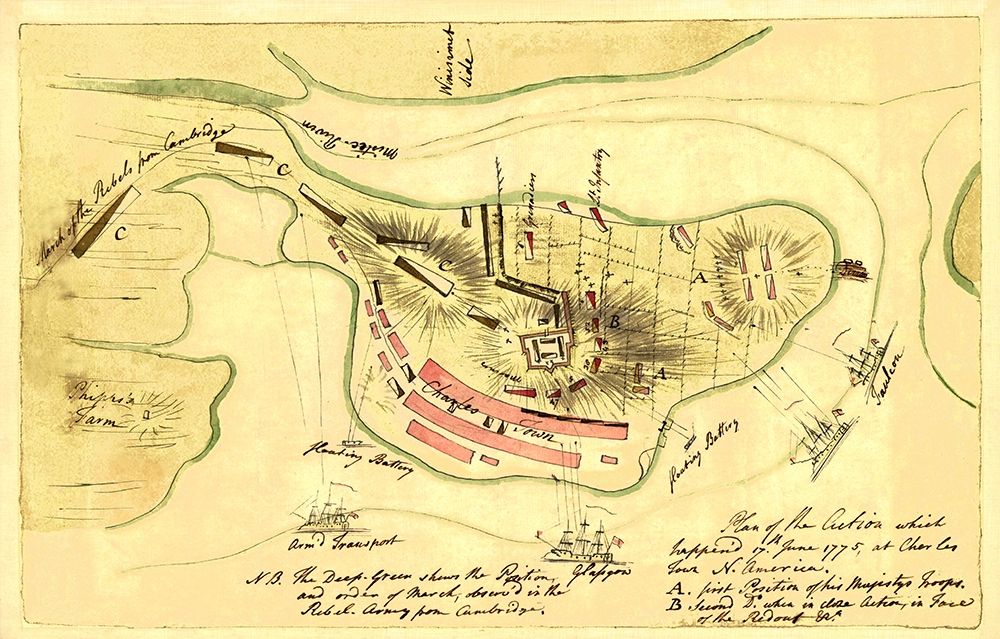 Winisimet
Side
March of the Rebels from Cambridge
Mistic River
C
C
C
Grenadiers
Lt. Infantry
A
B
A
Charles Town
Phipps's
Farm
floating Battery
floating Battery
Faulcon
Arm'd Transport
Glasgow
N.B. The Deep Green shews the Position,
and order of March, observ'd in the
Rebel Army from Cambridge.
Plan of the Action which
happen'd 17th. June 1775, at Charles
Town N. America.
A. first Position of his Majestys Troops.
B Second Do. when in close Action, in Face
of the Redout &ca